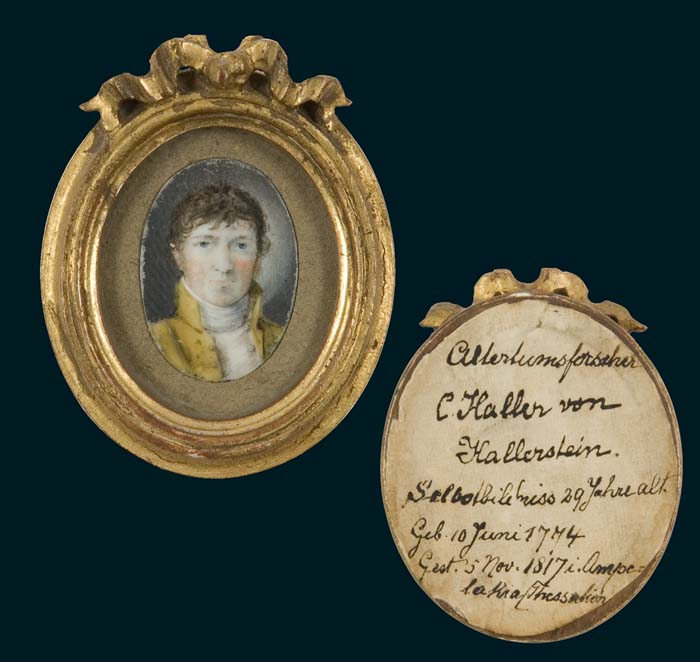 Altertumsforscher
C. Haller von
Hallerstein.
Selbstbildniss 29 Jahre alt.
Geb. 10 Juni 1774
Gest. 5 Nov. 1817 i. Ampe=
lakia/Thessalien